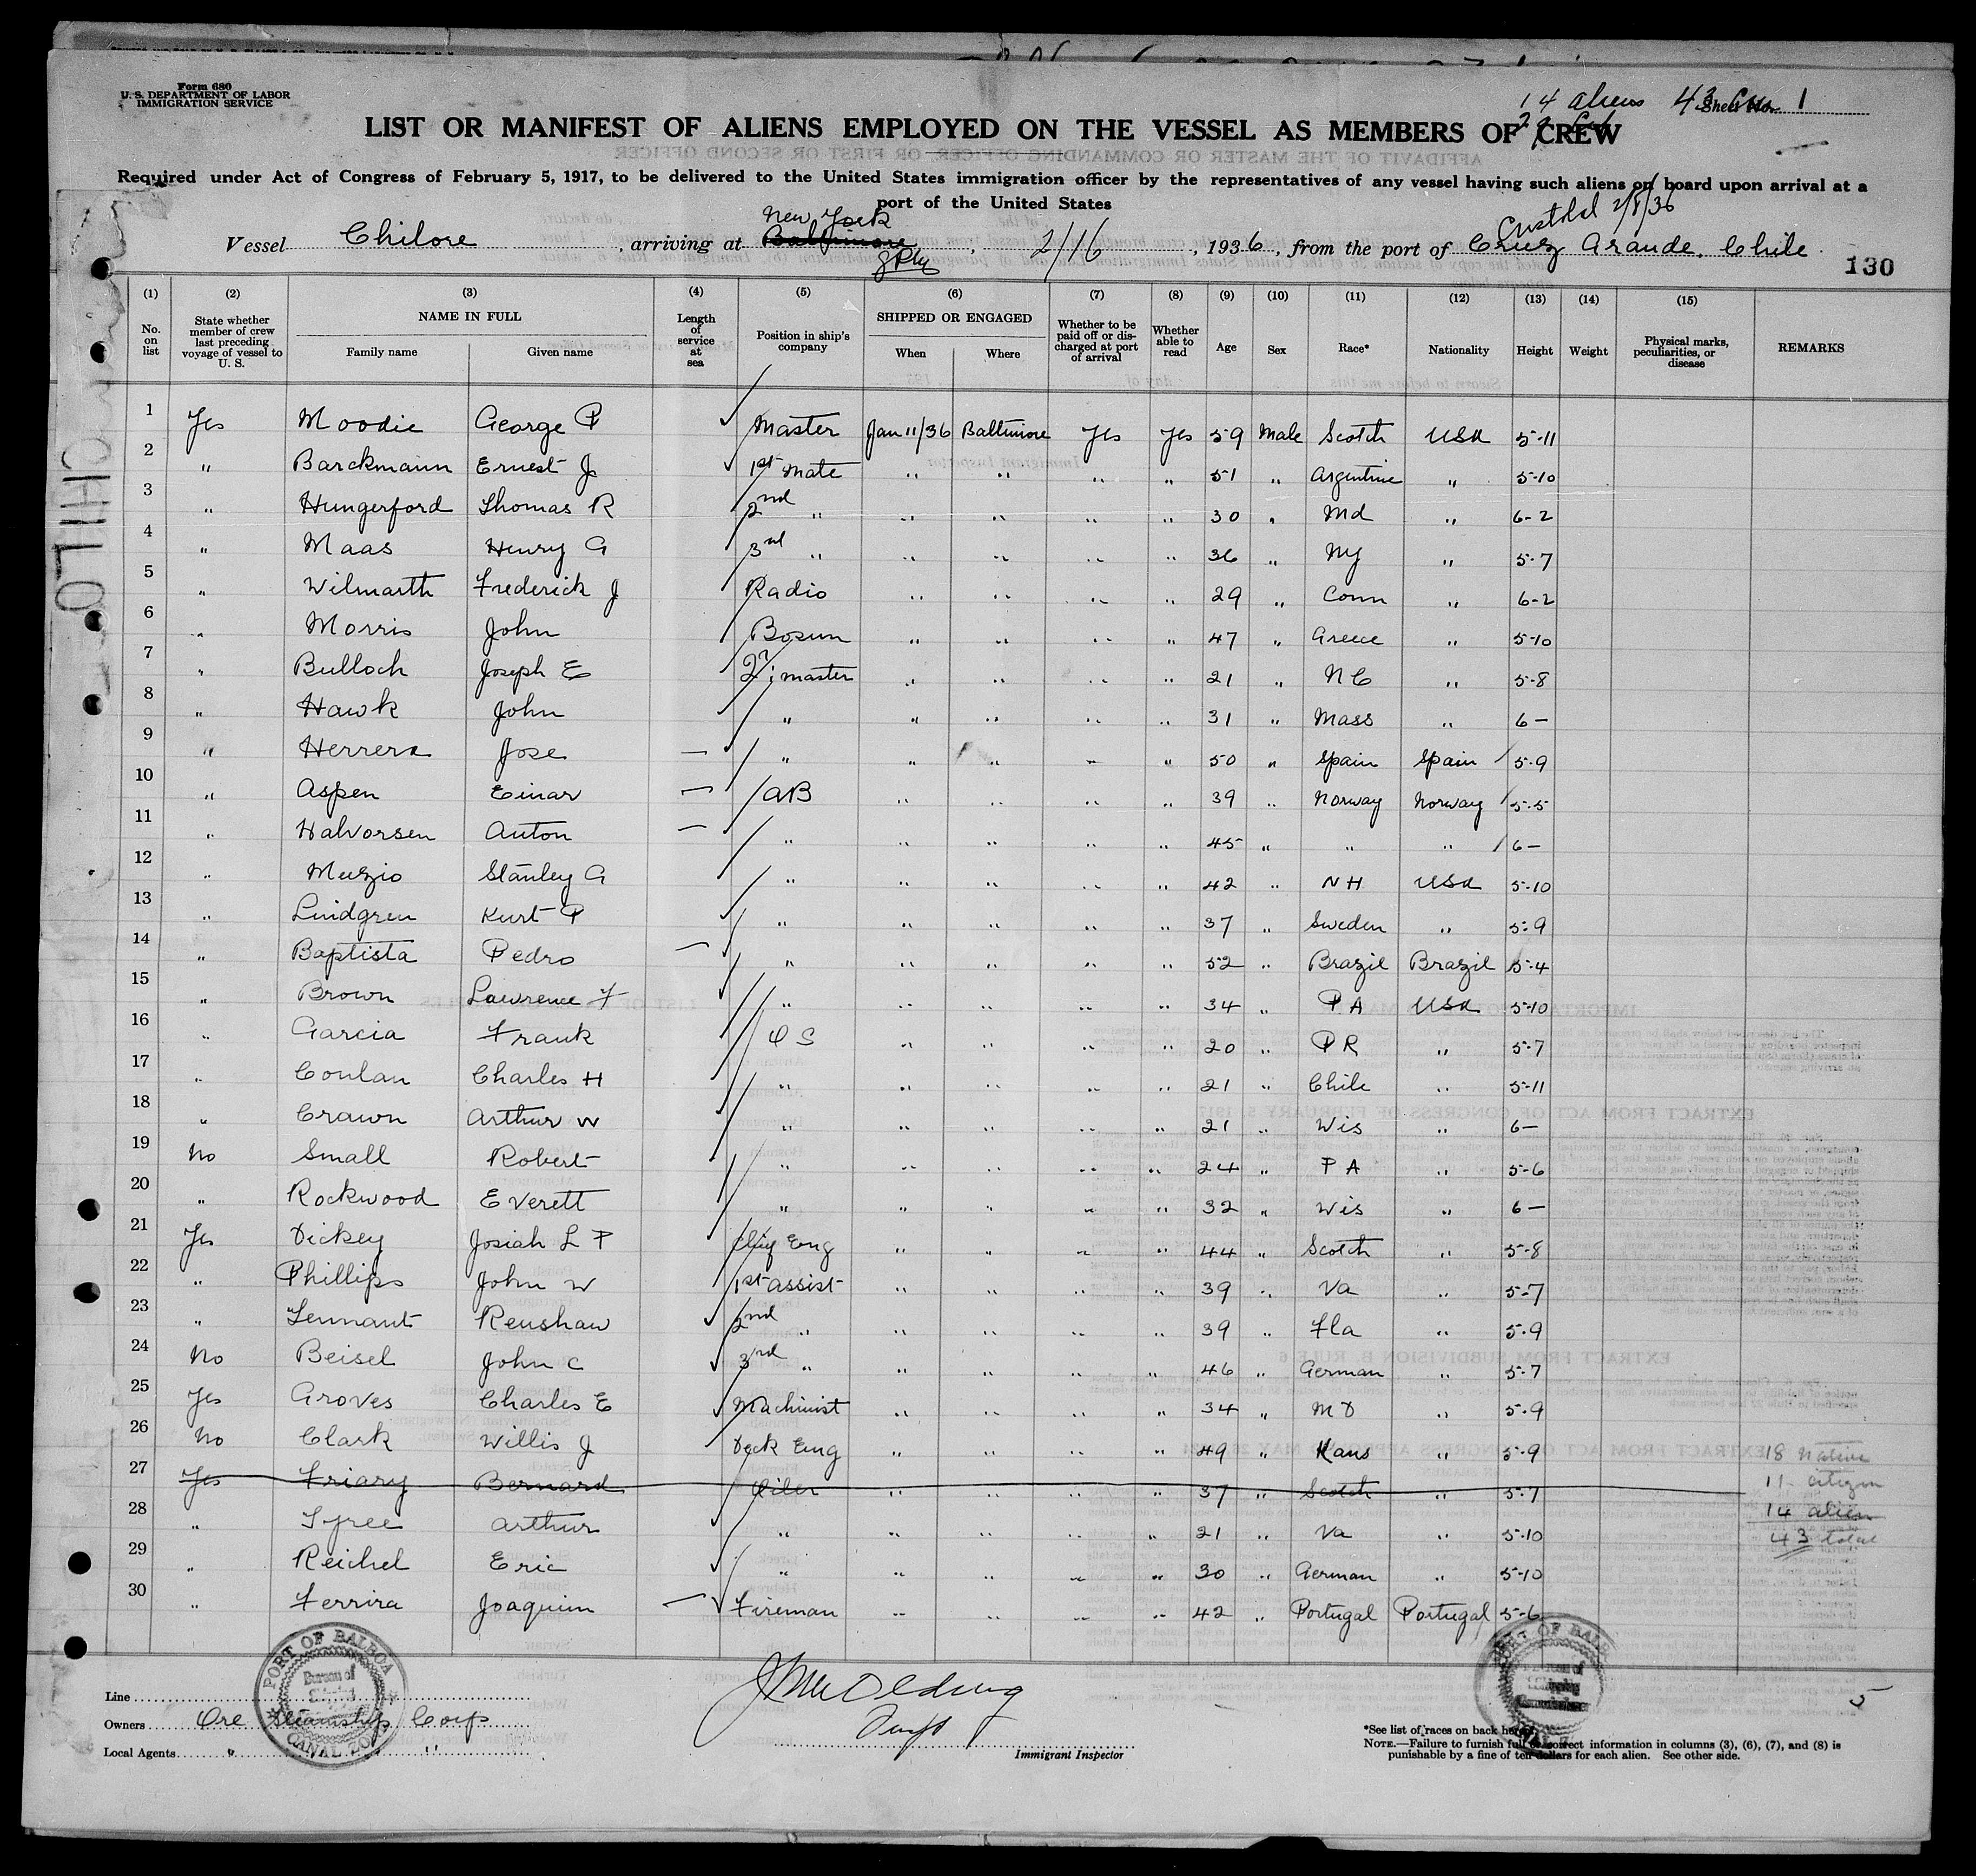 Form 680
U. S. DEPARTMENT OF LABOR
IMMIGRATION SERVICE
14 aliens 43 Sheet No. 1
LIST OR MANIFEST OF ALIENS EMPLOYED ON THE VESSEL AS MEMBERS OF CREW
Required under Act of Congress of February 5, 1917, to be delivered to the United States immigration officer by the representatives of any vessel having such aliens on board upon arrival at a
port of the United States
New York 2/8/36
Vessel Chilore, arriving at Baltimore, 2/16, 1936, from the port of Cruz Grande, Chile
130
(1) (2) (3) (4) (5) (6) (7) (8) (9) (10) (11) (12) (13) (14) (15)
No. on list State whether member of crew last preceding voyage of vessel to U. S. NAME IN FULL Family name Given name Length of service at sea Position in ship's company SHIPPED OR ENGAGED When Where Whether to be paid off or discharged at port of arrival Whether able to read Age Sex Race* Nationality Height Weight Physical marks, peculiarities, or disease REMARKS
1 Yes Moodie George P Master Jan 11/36 Baltimore Yes Yes 59 Male Scotch USA 5-11
2 " Barckmann Ernest J 1st Mate " " " " 51 " Argentine " 5-10
3 " Hungerford Thomas R 2nd " " " " " 30 " Md " 6-2
4 " Maas Henry G 3rd " " " " " 36 " NY " 5-7
5 " Wilmarth Frederick J Radio " " " " 29 " Conn " 6-2
6 " Morris John Bosun " " " " 47 " Greece " 5-10
7 " Bulloch Joseph E 2r master " " " " 21 " NC " 5-8
8 " Hawk John " " " " " 31 " Mass " 6-
9 " Herrera Jose — " " " " " 50 " Spain Spain 5-9
10 " Aspen Einar — AB " " " " 39 " Norway Norway 5-5
11 " Halvorsen Anton — " " " " " 45 " " " 6-
12 " Muzio Stanley G " " " " " 42 " NH USA 5-10
13 " Lindgren Kurt P " " " " " 37 " Sweden " 5-9
14 " Baptista Pedro — " " " " " 52 " Brazil Brazil 5-4
15 " Brown Lawrence F " " " " " 34 " PA USA 5-10
16 " Garcia Frank OS " " " " 20 " PR " 5-7
17 " Conlan Charles H " " " " " 21 " Chile " 5-11
18 " Crawn Arthur W " " " " " 21 " Wis " 6-
19 No Small Robert " " " " " 24 " PA " 5-6
20 " Rockwood Everett " " " " " 32 " Wis " 6-
21 Yes Dickey Josiah L P Chief Eng " " " " 44 " Scotch " 5-8
22 " Phillips John W 1st assist " " " " 39 " Va " 5-7
23 " Tennant Renshaw 2nd " " " " " 39 " Fla " 5-9
24 No Beisel John C 3rd " " " " " 46 " German " 5-7
25 Yes Groves Charles E Machinist " " " " 34 " MD " 5-9
26 No Clark Willis J Deck Eng " " " " 49 " Kans " 5-9
27 Yes Friary Bernard Oiler " " " " 37 " Scotch " 5-7
28 " Tyree Arthur " " " " " 21 " Va " 5-10
29 " Reichel Eric " " " " " 30 " German " 5-10
30 " Ferrira Joaquim — Fireman " " " " 42 " Portugal Portugal 5-6
18 native
11 citizen
14 alien
43 total
CHILO
PORT OF BALBOA
Bureau of
CANAL ZONE
Line
Owners Ore Steamship Corp
Local Agents " "
Immigrant Inspector
5
*See list of races on back hereof.
NOTE.—Failure to furnish full or correct information in columns (3), (6), (7), and (8) is
punishable by a fine of ten dollars for each alien. See other side.